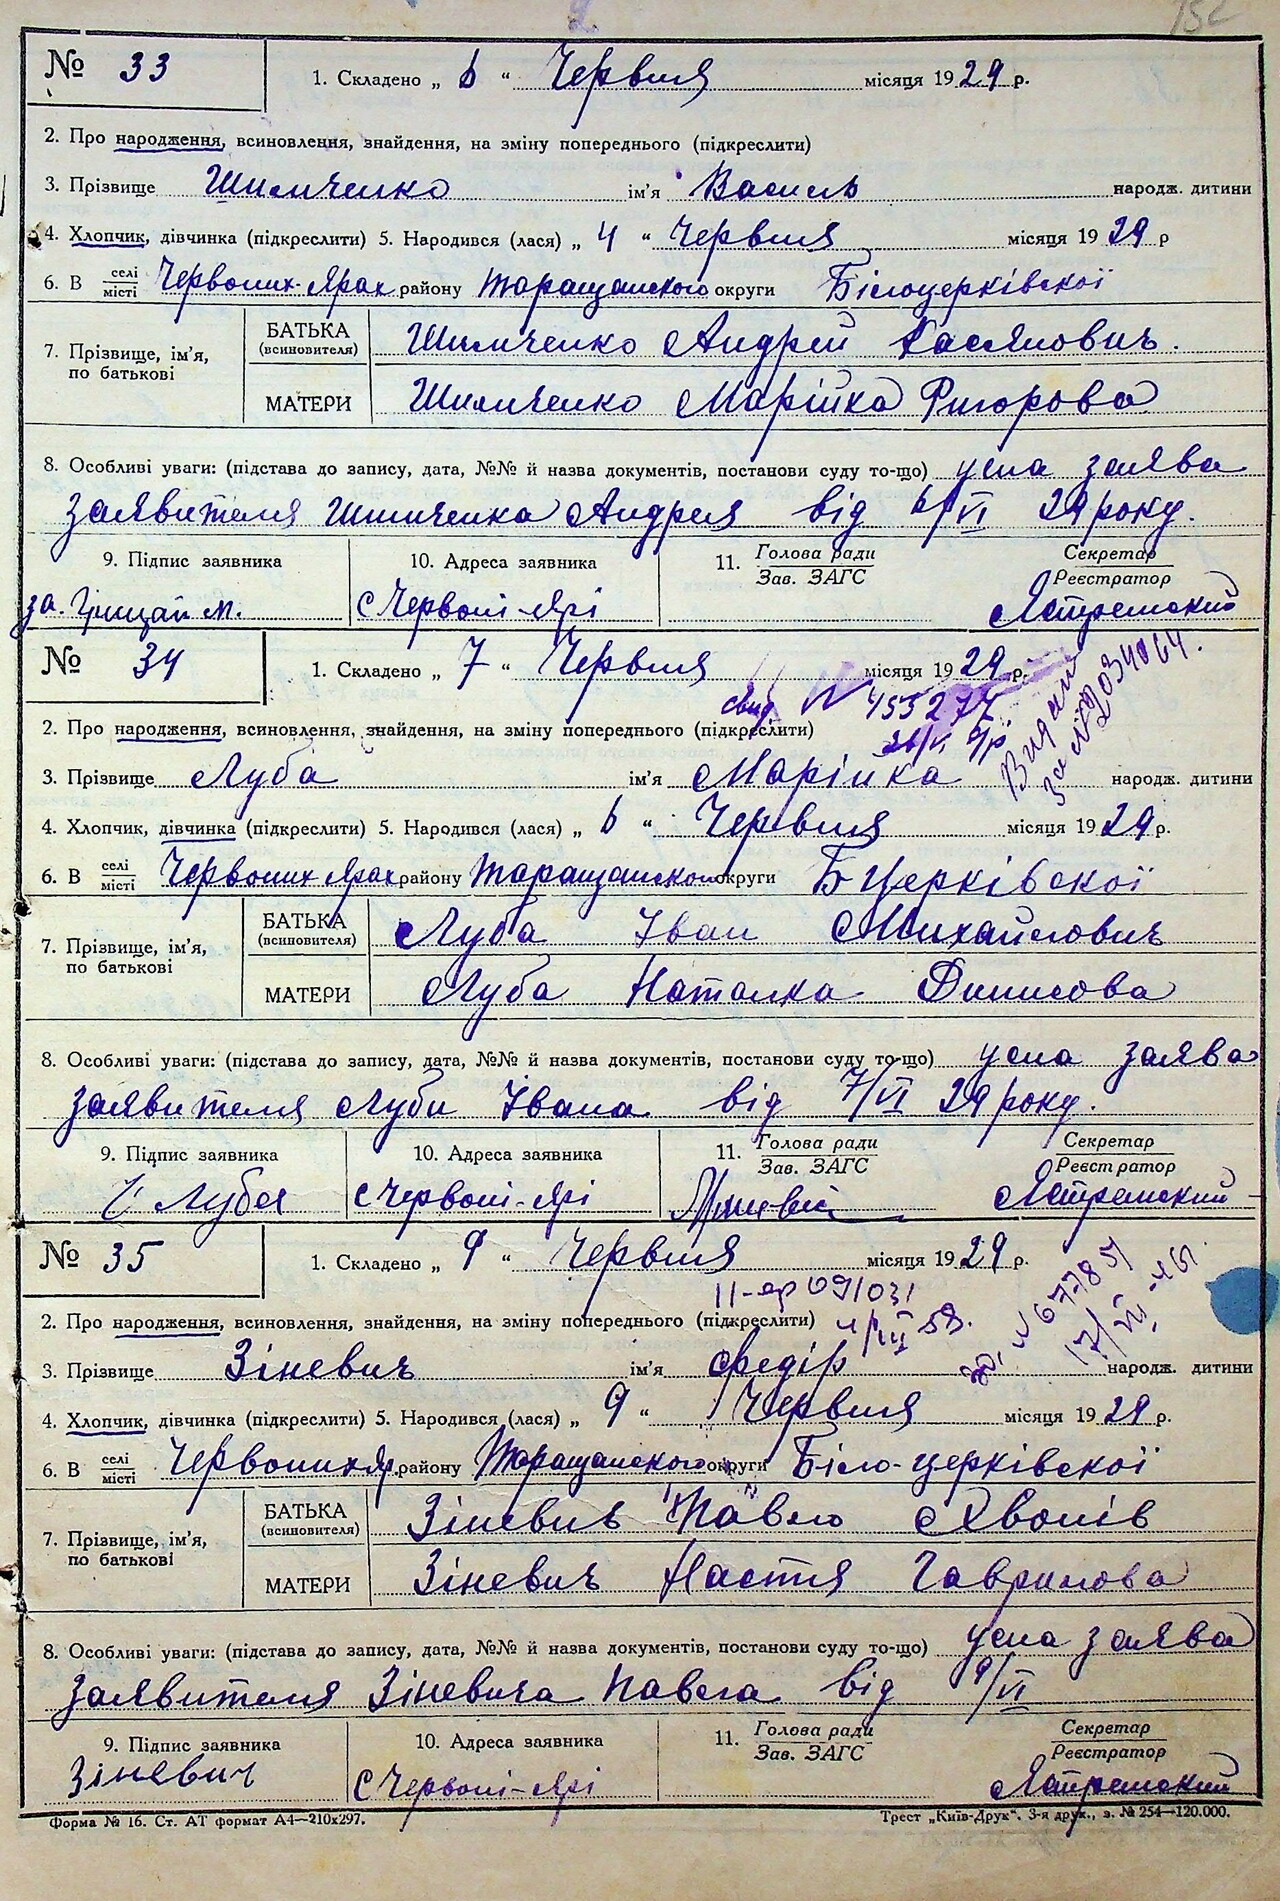 № 33
1. Складено „ 6 “ Червня місяця 1929 р.
2. Про народження, всиновлення, знайдення, на зміну попереднього (підкреслити)
3. Прізвище Шимченко ім'я Василь народж. дитини
4. Хлопчик, дівчинка (підкреслити) 5. Народився (лася) „ 4 “ Червня місяця 1929 р
6. В селі місті Червоних-Ярах району Таращанського округи Білоцерківської
7. Прізвище, ім'я, по батькові
БАТЬКА (всиновителя) Шимченко Андрей Касянович.
МАТЕРИ Шимченко Марійка Ригорова
8. Особливі уваги: (підстава до запису, дата, №№ й назва документів, постанови суду то-що) усна заява
заявителя Шимченка Андрея від 6/VI 29 року.
9. Підпис заявника 10. Адреса заявника 11. Голова ради Зав. ЗАГС Секретар Реєстратор
за. Грицай М. с Червоні-Ярі Ястремский
№ 34
1. Складено „ 7 “ Червня місяця 1929 р.
свид № 455274
2. Про народження, всиновлення, знайдення, на зміну попереднього (підкреслити)
Видан за № 2034064.
3. Прізвище Луба ім'я Марійка народж. дитини
4. Хлопчик, дівчинка (підкреслити) 5. Народився (лася) „ 6 “ Червня місяця 1929 р.
6. В селі місті Червоних Ярах району Таращанського округи Б Церківської
7. Прізвище, ім'я, по батькові
БАТЬКА (всиновителя) Луба Іван Михайлович
МАТЕРИ Луба Наталка Динисова
8. Особливі уваги: (підстава до запису, дата, №№ й назва документів, постанови суду то-що) усна заява
заявителя Луби Івана від 7/VI 29 року.
9. Підпис заявника 10. Адреса заявника 11. Голова ради Зав. ЗАГС Секретар Реєстратор
І Луба с Червоні-Ярі Ястремский
№ 35
1. Складено „ 9 “ Червня місяця 1929 р.
II-яр 091031
2. Про народження, всиновлення, знайдення, на зміну попереднього (підкреслити)
3. Прізвище Зіневич ім'я Федір народж. дитини
4. Хлопчик, дівчинка (підкреслити) 5. Народився (лася) „ 9 “ Червня місяця 1929 р.
6. В селі місті Червоних Яр. району Таращанського округи Біло-церківської
7. Прізвище, ім'я, по батькові
БАТЬКА (всиновителя) Зіневич Павло Явонів
МАТЕРИ Зіневич Настя Гаврилова
8. Особливі уваги: (підстава до запису, дата, №№ й назва документів, постанови суду то-що) усна заява
заявителя Зіневича Павла від 9/VI
9. Підпис заявника 10. Адреса заявника 11. Голова ради Зав. ЗАГС Секретар Реєстратор
Зіневич с Червоні-Ярі Ястремский
Форма № 16. Ст. АТ формат А4—210х297. Трест „Київ-Друк“. 3-я друк., з. № 254—120.000.